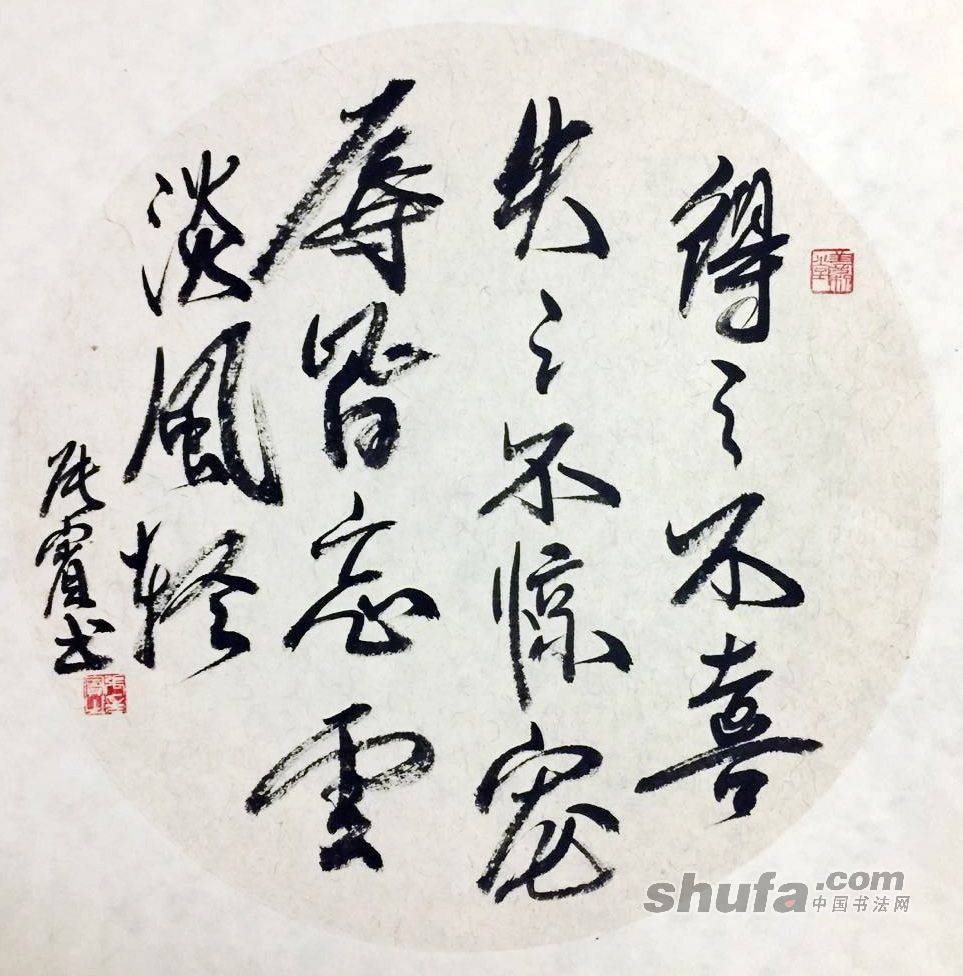 得之不喜
失之不惊宠
辱皆忘雲
淡風輕
张賓书
shufa.com
中国书法网